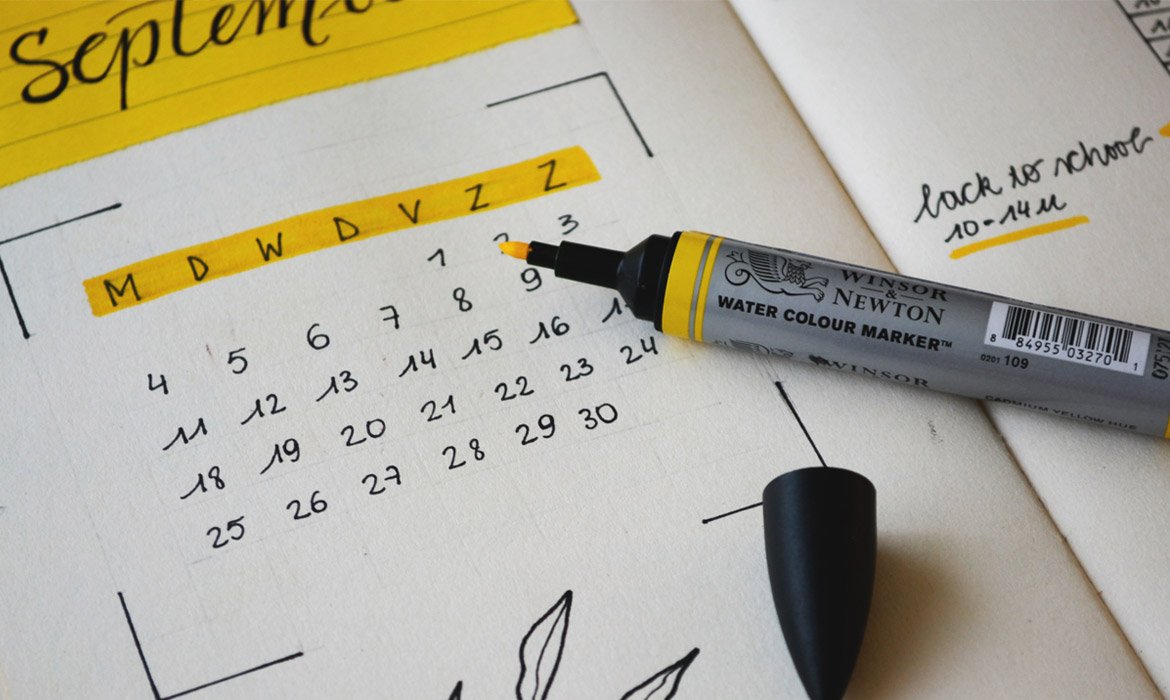 M D W D V Z Z
1 2 3
4 5 6 7 8 9
11 12 13 14 15 16
18 19 20 21 22 23 24
25 26 27 28 29 30
back to school
10-14u
WINSOR
&
NEWTON
WATER COLOUR MARKER™
WINSOR
0201 109
8 84955 03270 1
CADMIUM YELLOW HUE